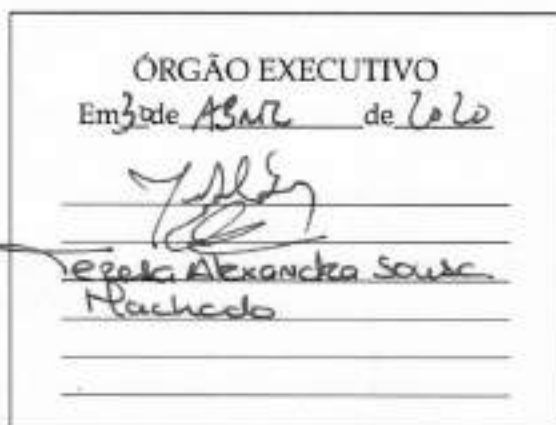 ÓRGÃO EXECUTIVO
Em 30 de ABRIL de 2020
Teresa Alexandra Sousa
Machado